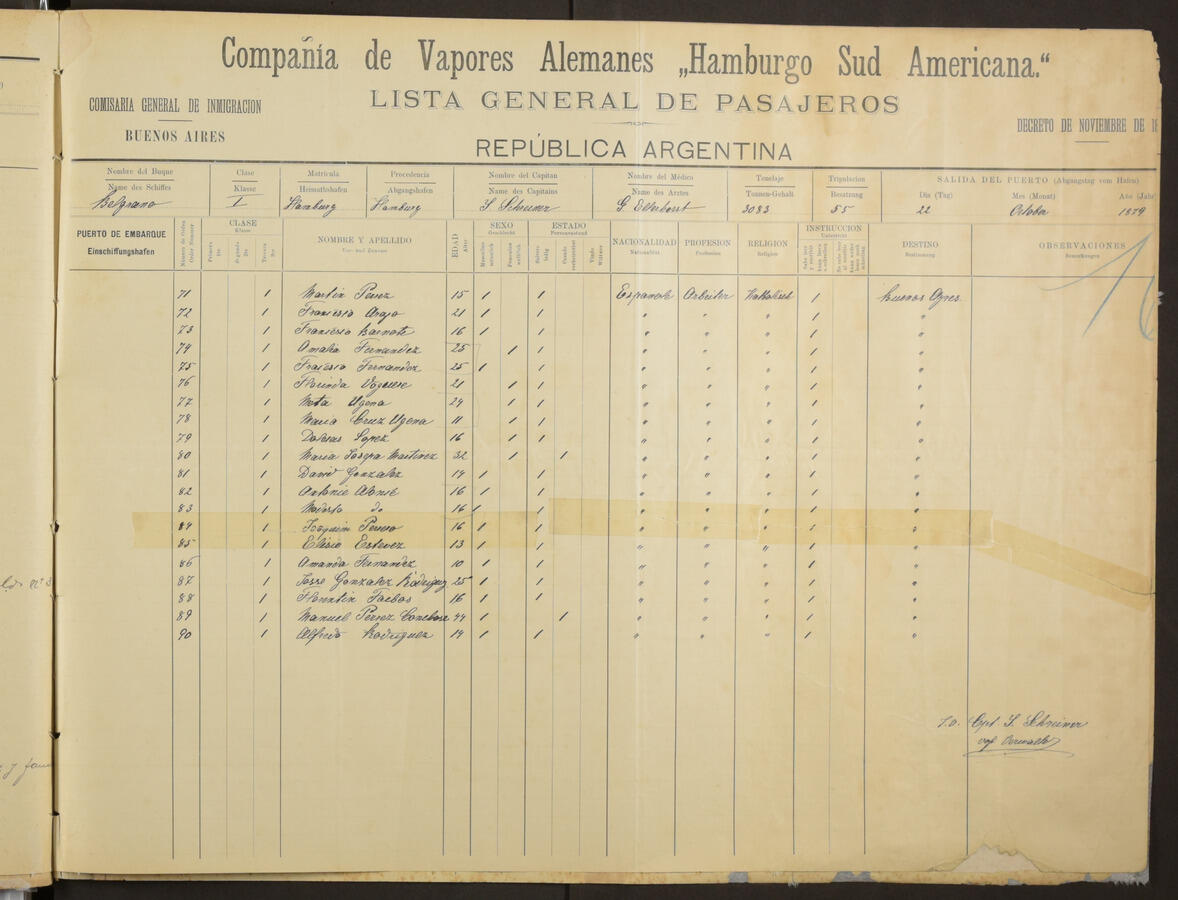 Compañía de Vapores Alemanes „Hamburgo Sud Americana.“
COMISARIA GENERAL DE INMIGRACION
LISTA GENERAL DE PASAJEROS
BUENOS AIRES
DECRETO DE NOVIEMBRE DE 18
REPÚBLICA ARGENTINA
Nombre del Buque Clase Matricula Procedencia Nombre del Capitan Nombre del Médico Tonelaje Tripulacion SALIDA DEL PUERTO (Abgangstag vom Hafen)
Name des Schiffes Klasse Heimathshafen Abgangshafen Name des Capitains Name des Arztes Tonnen-Gehalt Besatzung Dia (Tag) Mes (Monat) Año (Jahr
Belgrano I Hamburg Hamburg 3083 55 22 October 1879
PUERTO DE EMBARQUE
Einschiffungshafen
Número de Orden CLASE Klasse NOMBRE Y APELLIDO Vor- und Zuname EDAD Alter SEXO Geschlecht ESTADO NACIONALIDAD Nationalität PROFESION Profession RELIGION Religion INSTRUCCION Unterricht DESTINO Bestimmung OBSERVACIONES Bemerkungen
71 1 Martin Perez 15 1 1 Espanerh Arbeiter Katholisch 1 Buenos Ayres
72 1 Francisco Arajo 21 1 1 " " " 1 "
73 1 Francisco 16 1 1 " " " 1 "
74 1 Amalia Fernandez 25 1 1 " " " 1 "
75 1 Fracisco Fernandez 25 1 1 " " " 1 "
76 1 Florinda 21 1 1 " " " 1 "
77 1 Ugena 24 1 1 " " " 1 "
78 1 Maria Cruz Ugena 11 1 1 " " " 1 "
79 1 Lopez 16 1 1 " " " 1 "
80 1 Maria Josepa Martinez 32 1 1 " " " 1 "
81 1 David Gonzalez 19 1 1 " " " 1 "
82 1 Antonio Alonso 16 1 1 " " " 1 "
83 1 Modesto do 16 1 1 " " " 1 "
84 1 Joaquim 16 1 1 " " " 1 "
85 1 Elisio Estevez 13 1 1 " " " 1 "
86 1 Amanda Fernandez 10 1 1 " " " 1 "
87 1 Josse Gonzalez Rodriguez 25 1 1 " " " 1 "
88 1 Florentin 16 1 1 " " " 1 "
89 1 Manuel Perez 44 1 1 " " " 1 "
90 1 Alfredo Rodriguez 19 1 1 " " " 1 "
Cpt.